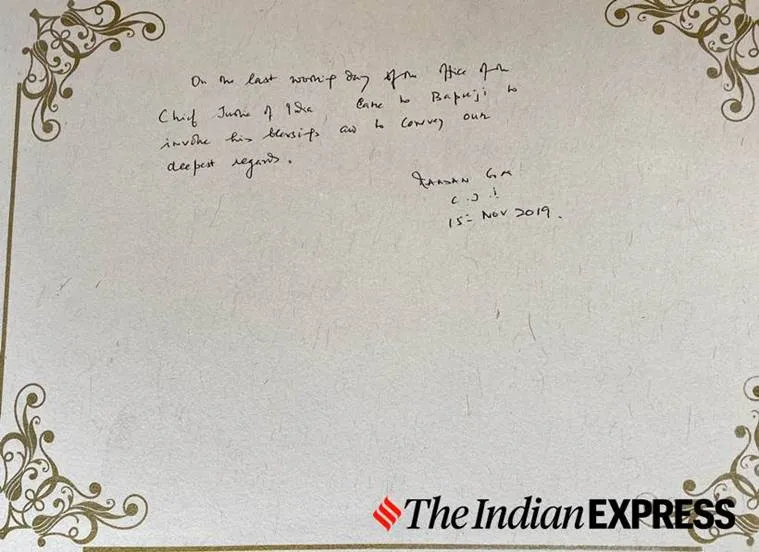 On the last working day of the office of the
Chief Justice of India came to Bapuji to
invoke his blessings and to convey our
deepest regards.
RANJAN GOGOI
C.J.I
15th NOV 2019.
The Indian EXPRESS